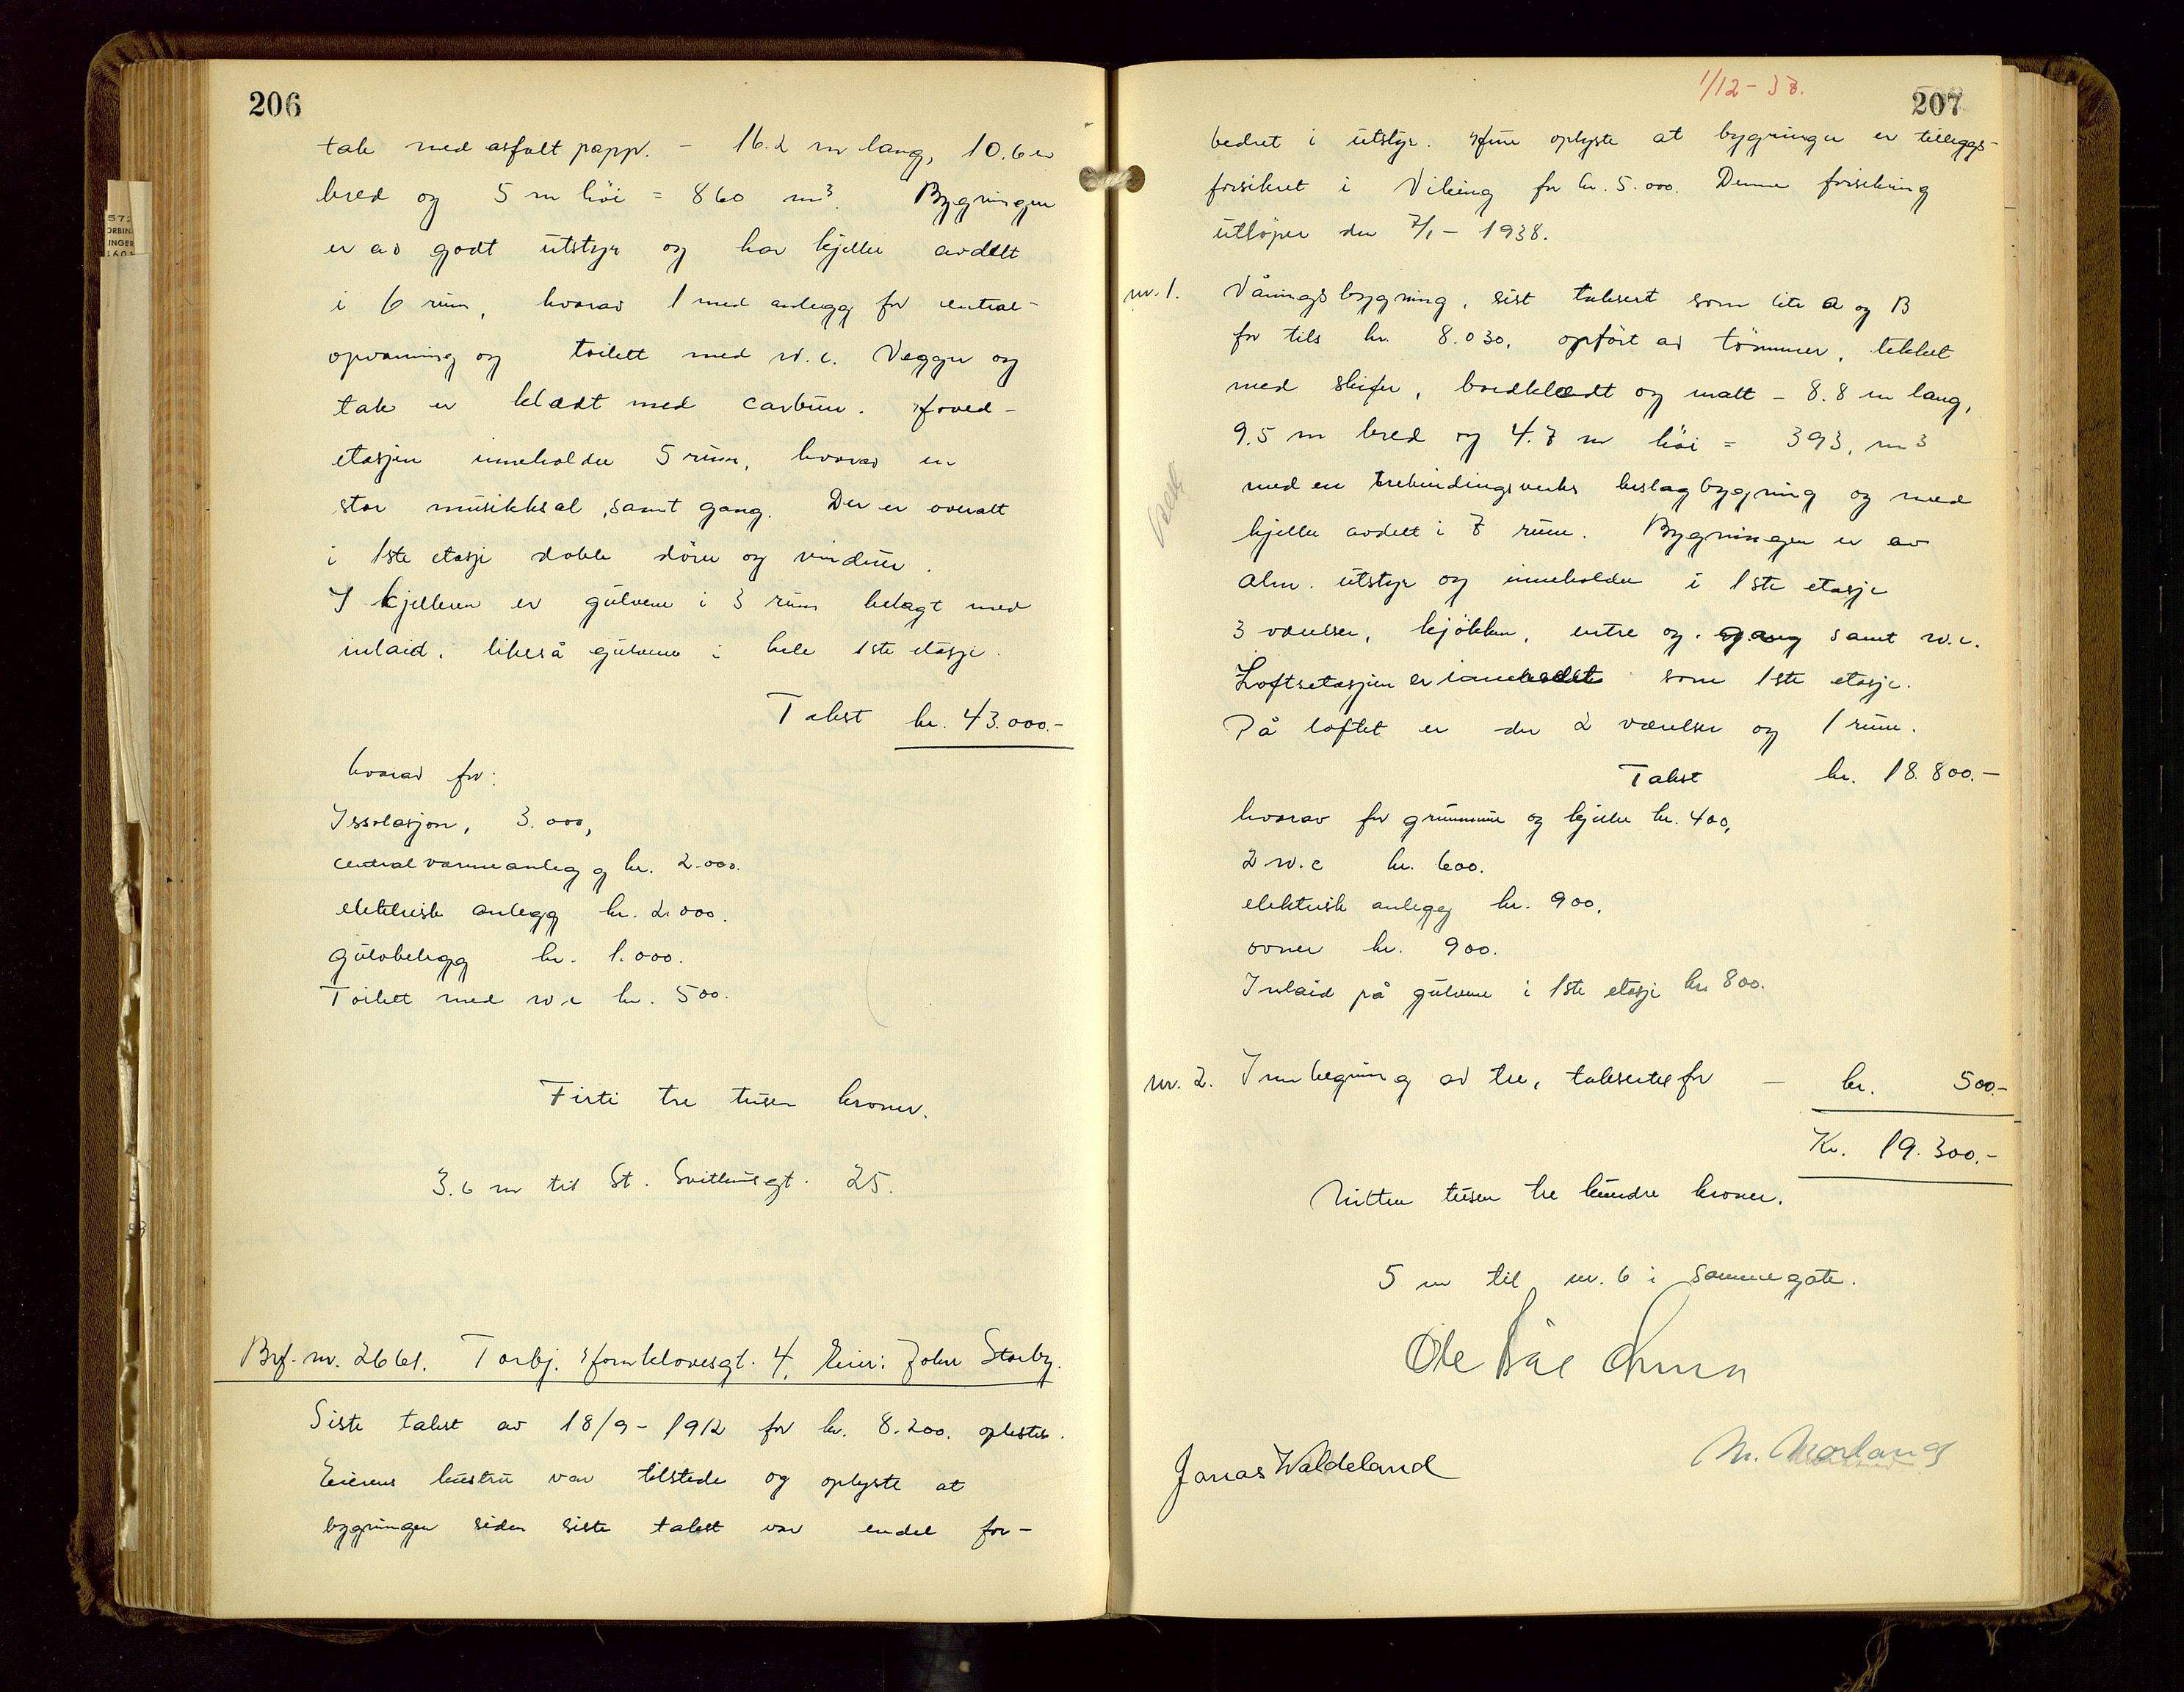 206
tak med asfalt papp. - 16.2 m lang, 10.6 m
bred og 5 m höi = 860 m³. Bygningen
er av godt utstyr og har kjeller avdelt
i 6 rum, hvorav 1 med anlegg for central-
opvarming og toilett med w.c. Vegger og
tak er klædt med carbun. Hoved-
etasjen inneholder 5 rum, hvorav en
stor musikksal, samt gang. Der er overalt
i 1ste etasje doble dörer og vinduer.
I kjelleren er gulvene i 3 rum belagt med
inlaid, likeså gulvene i hele 1ste etasje.
Takst kr. 43.000.-
hvorav for:
Issolasjon, 3.000,
centralvarmeanlegg kr. 2.000.
elektrisk anlegg kr. 2.000.
gulvbelegg kr. 1.000.
Toilett med w.c kr. 500.
Firti tre tusen kroner.
3.6 m til St. Svithunsgt. 25.
Brf. nr. 2661. Torbj. Hornklovesgt. 4. Eier: John Storby.
Siste takst av 18/9 - 1912 for kr. 8.200. oplestes.
Eierens hustru var tilstede og oplyste at
bygningen siden siste takst var endel for-
1/12 - 38.
207
bedret i utstyr. Hun oplyste at bygningen er tilleggs-
forsikret i Viking for kr. 5.000. Denne forsikring
utlöper den 7/1 - 1938.
nr. 1. Våningsbygning, sist taksert som lite A og B
for tils kr. 8.030, opfört av tömmer, tekket
med skifer, bordklædt og malt - 8.8 m lang,
9.5 m bred og 4.7 m höi = 393, m³
med en trebindingsverks beslagbygning og med
kjeller avdelt i 7 rum. Bygningen er av
alm. utstyr og inneholder i 1ste etasje
3 værelser, kjökken, entre og gang samt w.c.
Loftsetasjen er innredet som 1ste etasje.
På loftet er der 2 værelser og 1 rum.
Takst kr. 18.800.-
hvorav for grunnmur og kjeller kr. 400,
2 w.c kr. 600.
elektrisk anlegg kr. 900,
ovner kr. 900.
Inlaid på gulvene i 1ste etasje kr. 800.
nr. 2. Innhegning av tre, taksertes for - kr. 500.-
Kr. 19.300.-
Nitten tusen tre hundre kroner.
5 m til nr. 6 i samme gate.
Ole
Jonas Waldeland